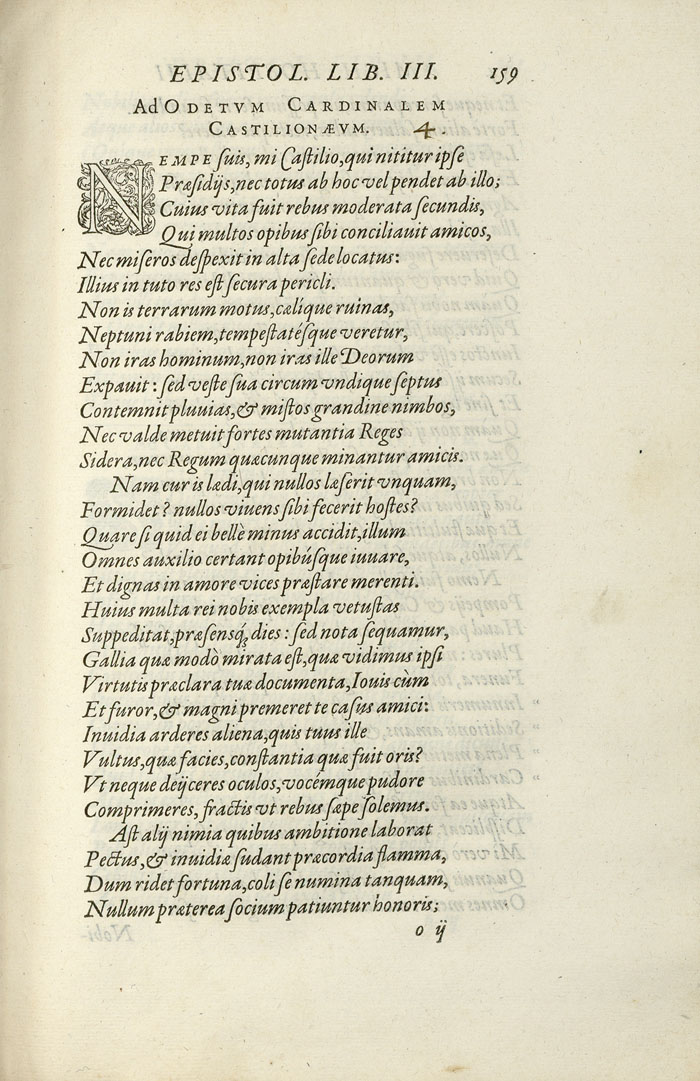 EPISTOL. LIB. III. 159
Ad ODETVM CARDINALEM
CASTILIONÆVM. 4.
NEMPE suis, mi Castilio, qui nititur ipse
Præsidijs, nec totus ab hoc vel pendet ab illo;
Cuius vita fuit rebus moderata secundis,
Qui multos opibus sibi conciliauit amicos,
Nec miseros despexit in alta sede locatus:
Illius in tuto res est secura pericli.
Non is terrarum motus, cælique ruinas,
Neptuni rabiem, tempestatésque veretur,
Non iras hominum, non iras ille Deorum
Expauit: sed veste sua circum vndique septus
Contemnit pluuias, & mistos grandine nimbos,
Nec valde metuit fortes mutantia Reges
Sidera, nec Regum quæcunque minantur amicis.
Nam cur is lædi, qui nullos læserit vnquam,
Formidet? nullos viuens sibi fecerit hostes?
Quare si quid ei bellè minus accidit, illum
Omnes auxilio certant opibúsque iuuare,
Et dignas in amore vices præstare merenti.
Huius multa rei nobis exempla vetustas
Suppeditat, præsensq́; dies: sed nota sequamur,
Gallia quæ modò mirata est, quæ vidimus ipsi
Virtutis præclara tuæ documenta, Iouis cùm
Et furor, & magni premeret te casus amici:
Inuidia arderes aliena, quis tuus ille
Vultus, quæ facies, constantia quæ fuit oris?
Vt neque deijceres oculos, vocémque pudore
Comprimeres, fractis vt rebus sæpe solemus.
Ast alij nimia quibus ambitione laborat
Pectus, & inuidiæ sudant præcordia flamma,
Dum ridet fortuna, coli se numina tanquam,
Nullum præterea socium patiuntur honoris;
o ij